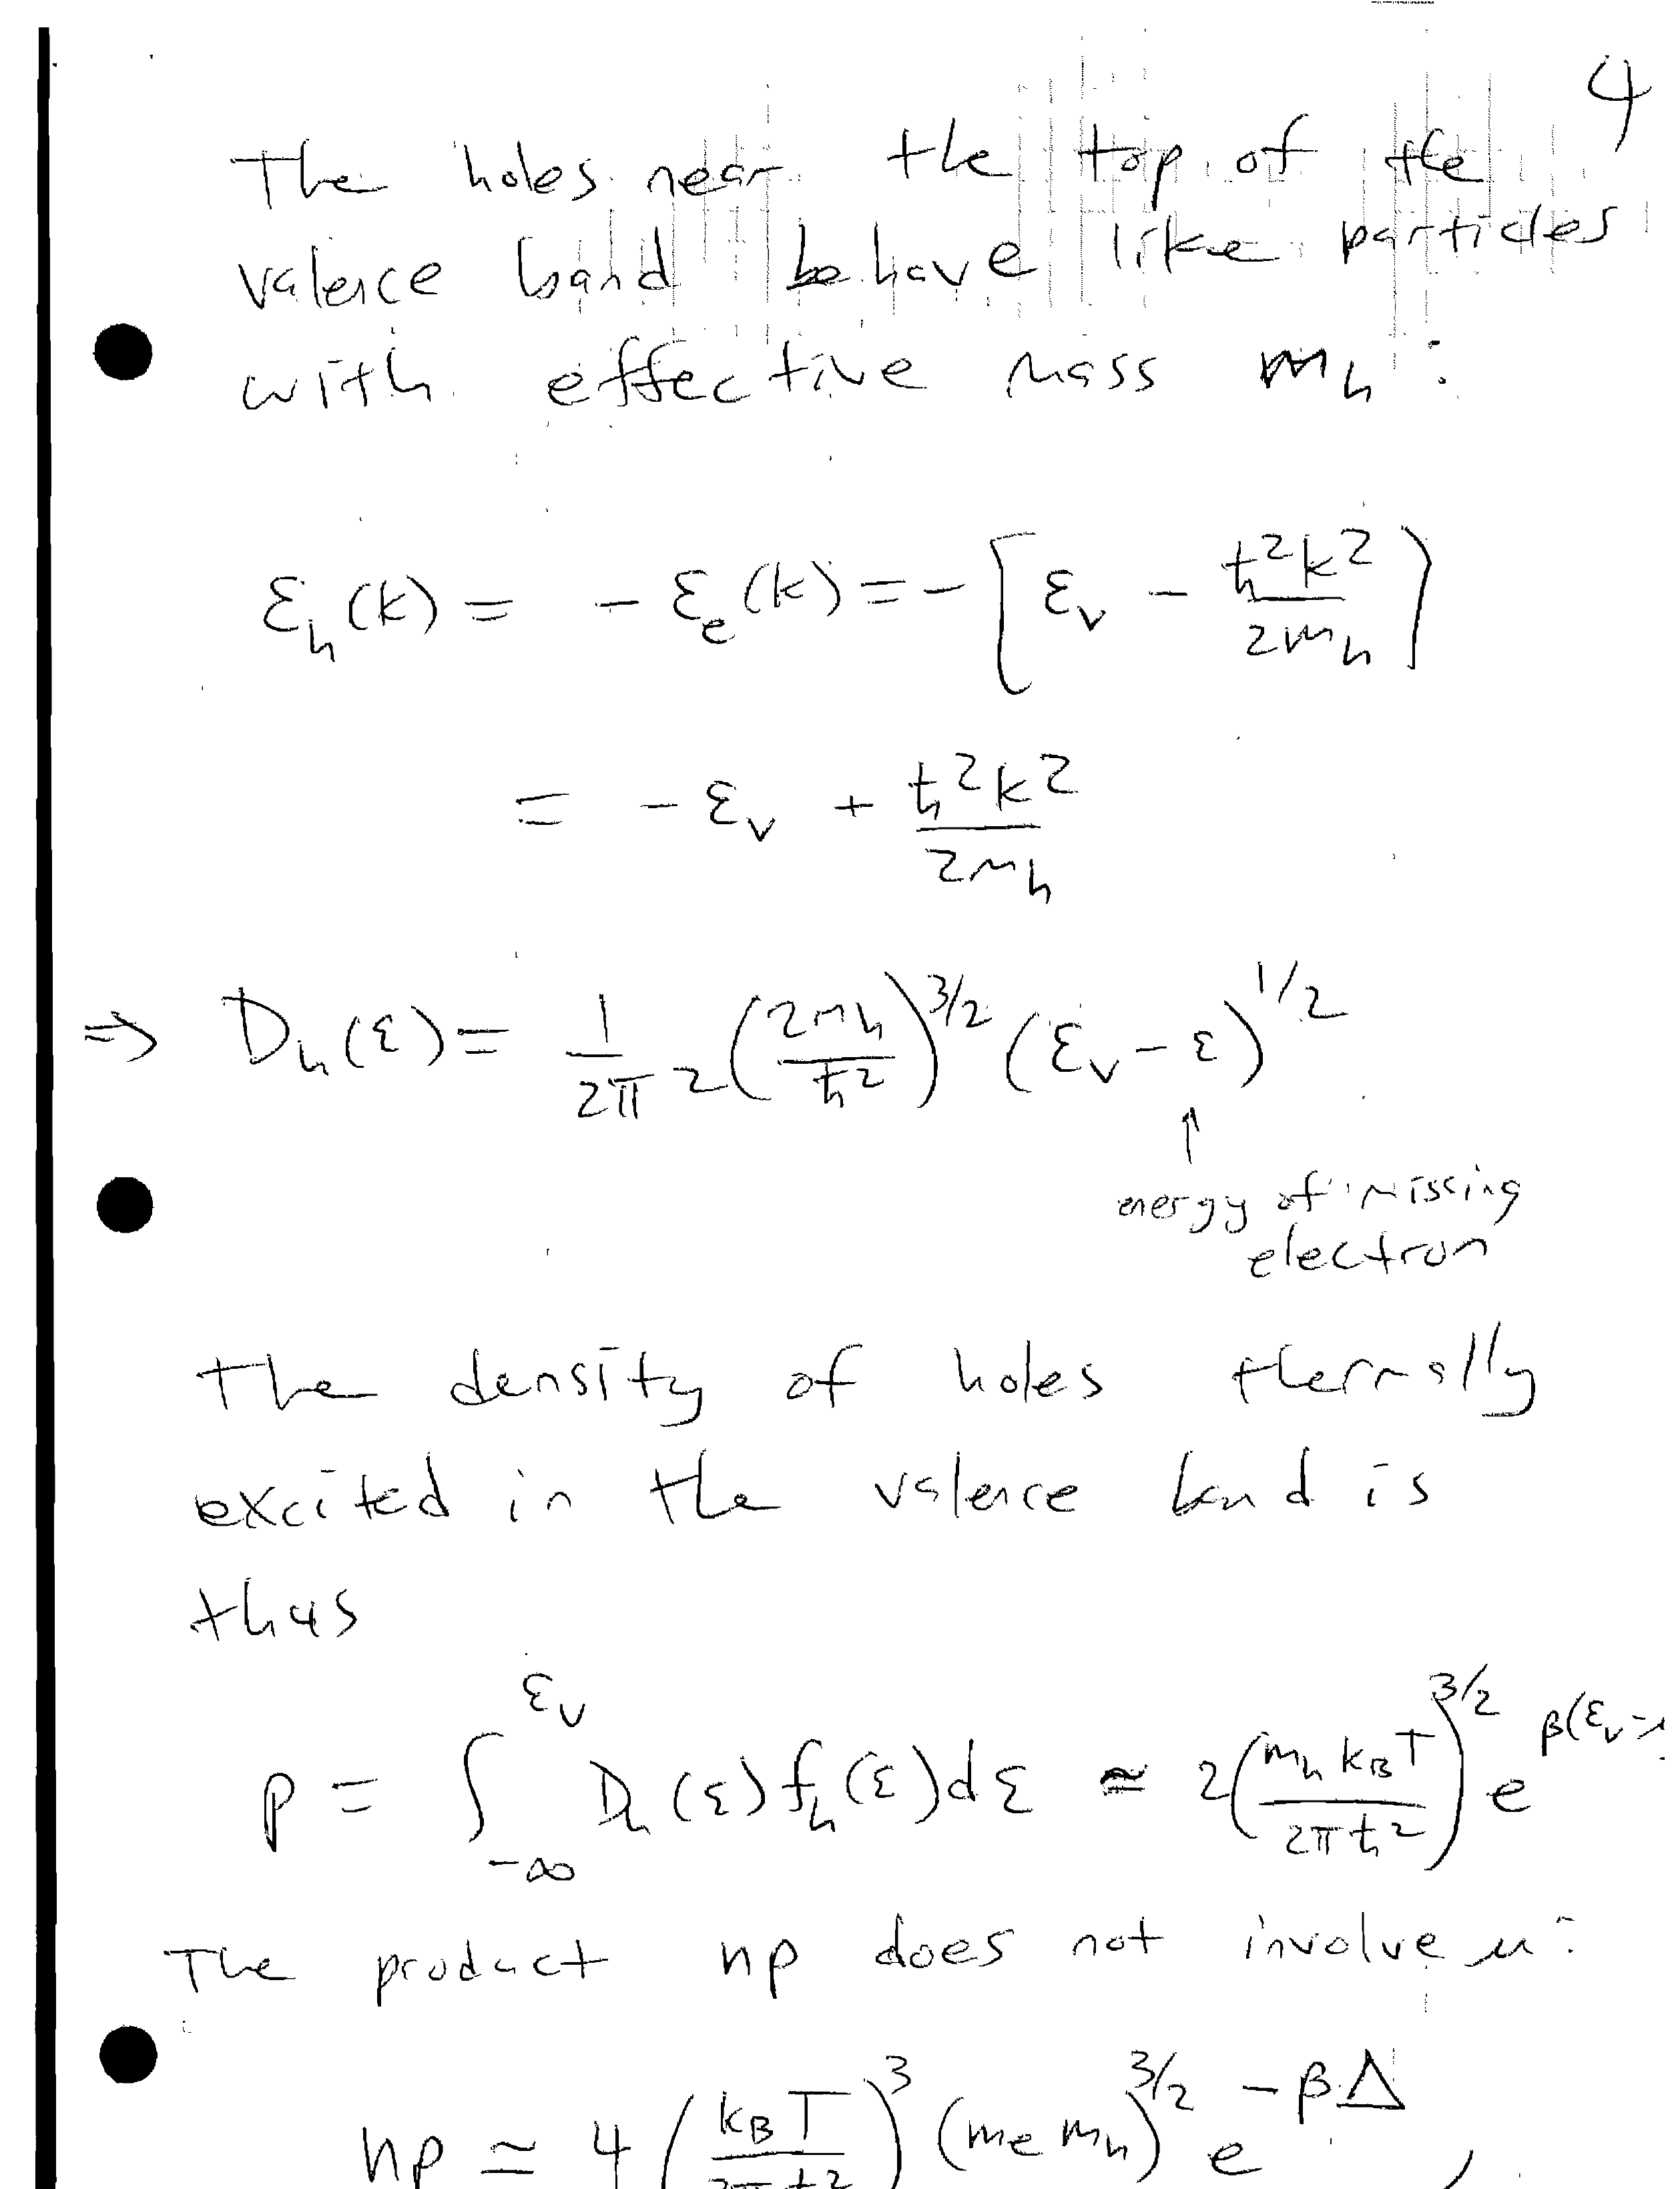 4
The holes near the top of the
valence band behave like particles
with effective mass m_h :
ε_h(k) = - ε_e(k) = - [ε_v - ħ²k²/2m_h]
= - ε_v + ħ²k²/2m_h
⇒ D_h(ε) = 1/2π² (2m_h/ħ²)^3/2 (ε_v - ε)^1/2
↑
energy of missing
electron
The density of holes thermally
excited in the valence band is
thus
p = ∫_{-∞}^{ε_v} D_h(ε) f_h(ε) dε ≃ 2(m_h k_B T/2πħ²)^3/2 e^β(ε_v-μ
The product np does not involve μ:
np ≃ 4 (k_B T/2πħ²)^3 (m_e m_h)^3/2 e^-βΔ ,